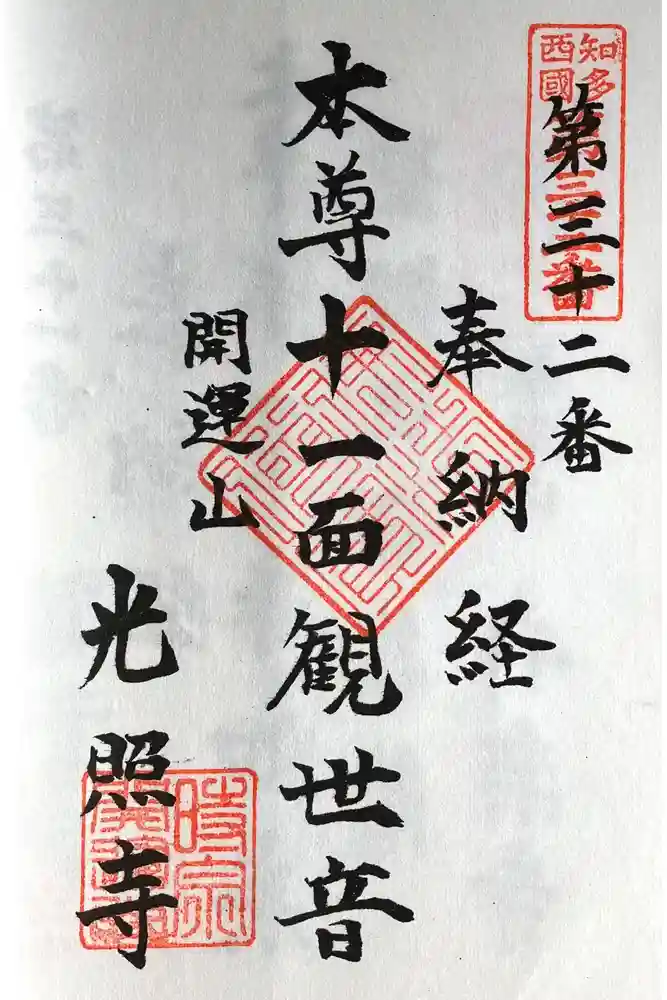 知多
西國
第三十二番
奉納経
本尊十一面観世音
開運山
光照寺
時宗